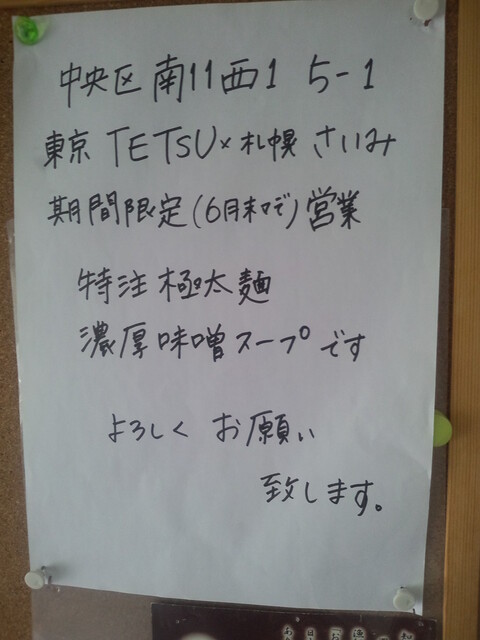 中央区南11西1 5-1
東京 TETSU×札幌 さいみ
期間限定(6月末まで)営業
特注極太麺
濃厚味噌スープです
よろしく お願い
致します。